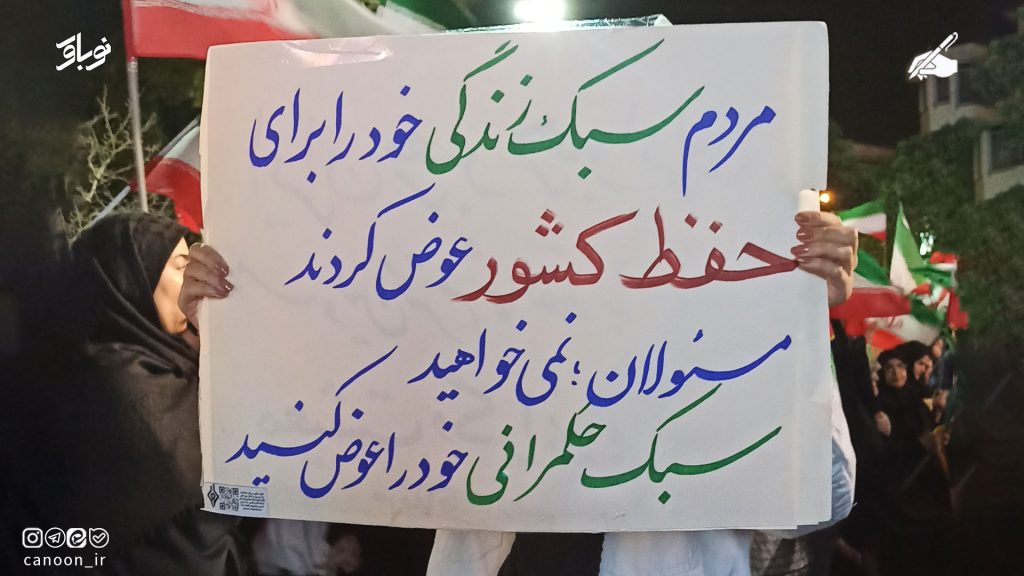 نوباوه
مردم سبک زندگی خود را برای
حفظ کشور عوض کردند
مسئولان؛ نمی‌خواهید
سبک حکمرانی خود را عوض کنید
canoon_ir